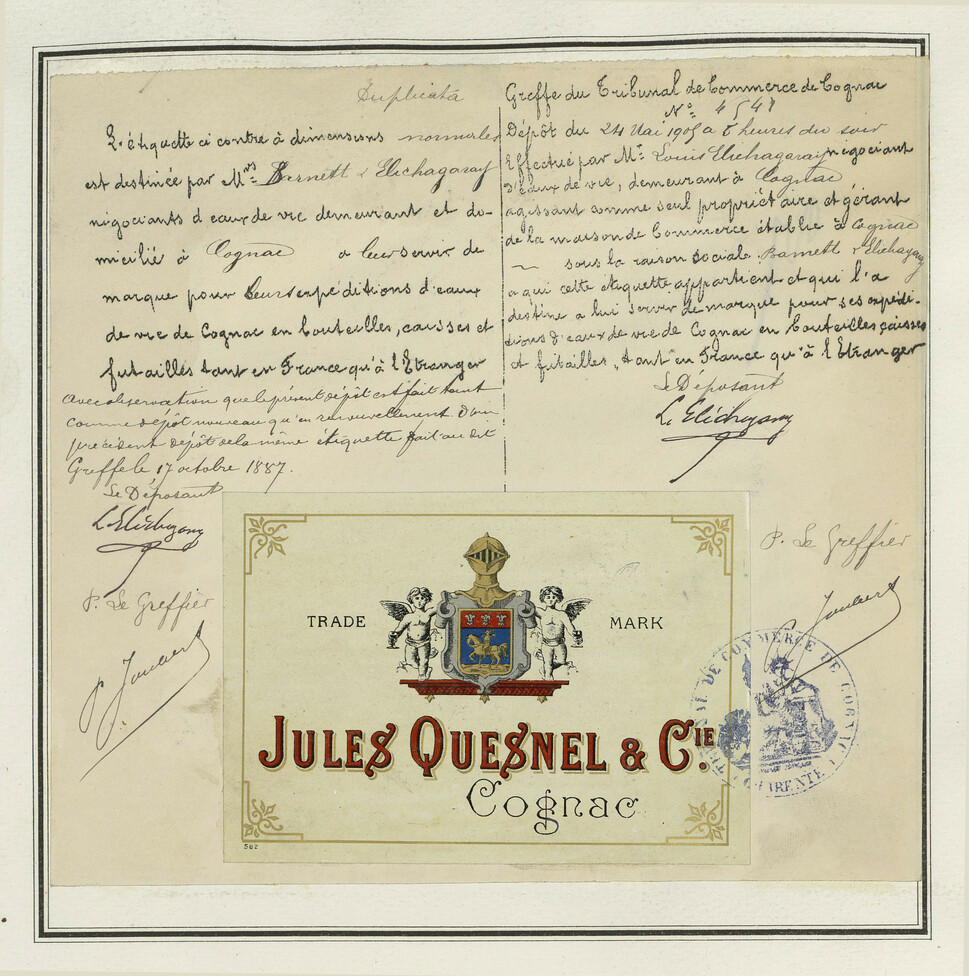 Duplicata
L'étiquette ci contre à dimensions normales
est destinée par Mrs Barnett & Elichagaray
négociants d'eaux de vie demeurant et do-
micilié à Cognac a leur servir de
marque pour leurs expéditions d'eaux
de vie de Cognac en bouteilles, caisses et
futailles tant en France qu'à l'Etranger
avec observation que le présent dépôt est fait tant
comme dépôt nouveau qu'en renouvellement d'un
précédent dépôt de la même étiquette fait au dit
Greffe le 17 octobre 1887.
Le Déposant
L Elichagaray
P. Le Greffier
P. Joubert
Greffe du Tribunal de Commerce de Cognac
No 4541
Dépôt du 24 Mai 1905 a 5 heures du soir
Effectué par Mr Louis Elichagaray négociant
d'eaux de vie, demeurant à Cognac
agissant comme seul propriétaire et gérant
de la maison de Commerce établie à Cognac
sous la raison sociale Barnett & Elichagaray
a qui cette étiquette appartient et qui l'a
destine a lui servir de marque pour ses expédi-
tions d'eaux de vie de Cognac en bouteilles caisses
et futailles, tant en France qu'à l'Etranger
Le Déposant
L Elichagaray
P. Le Greffier
Joubert
TRADE MARK
JULES QUESNEL & CIE.
Cognac
502
TRIBUNAL DE COMMERCE DE COGNAC
(CHARENTE)